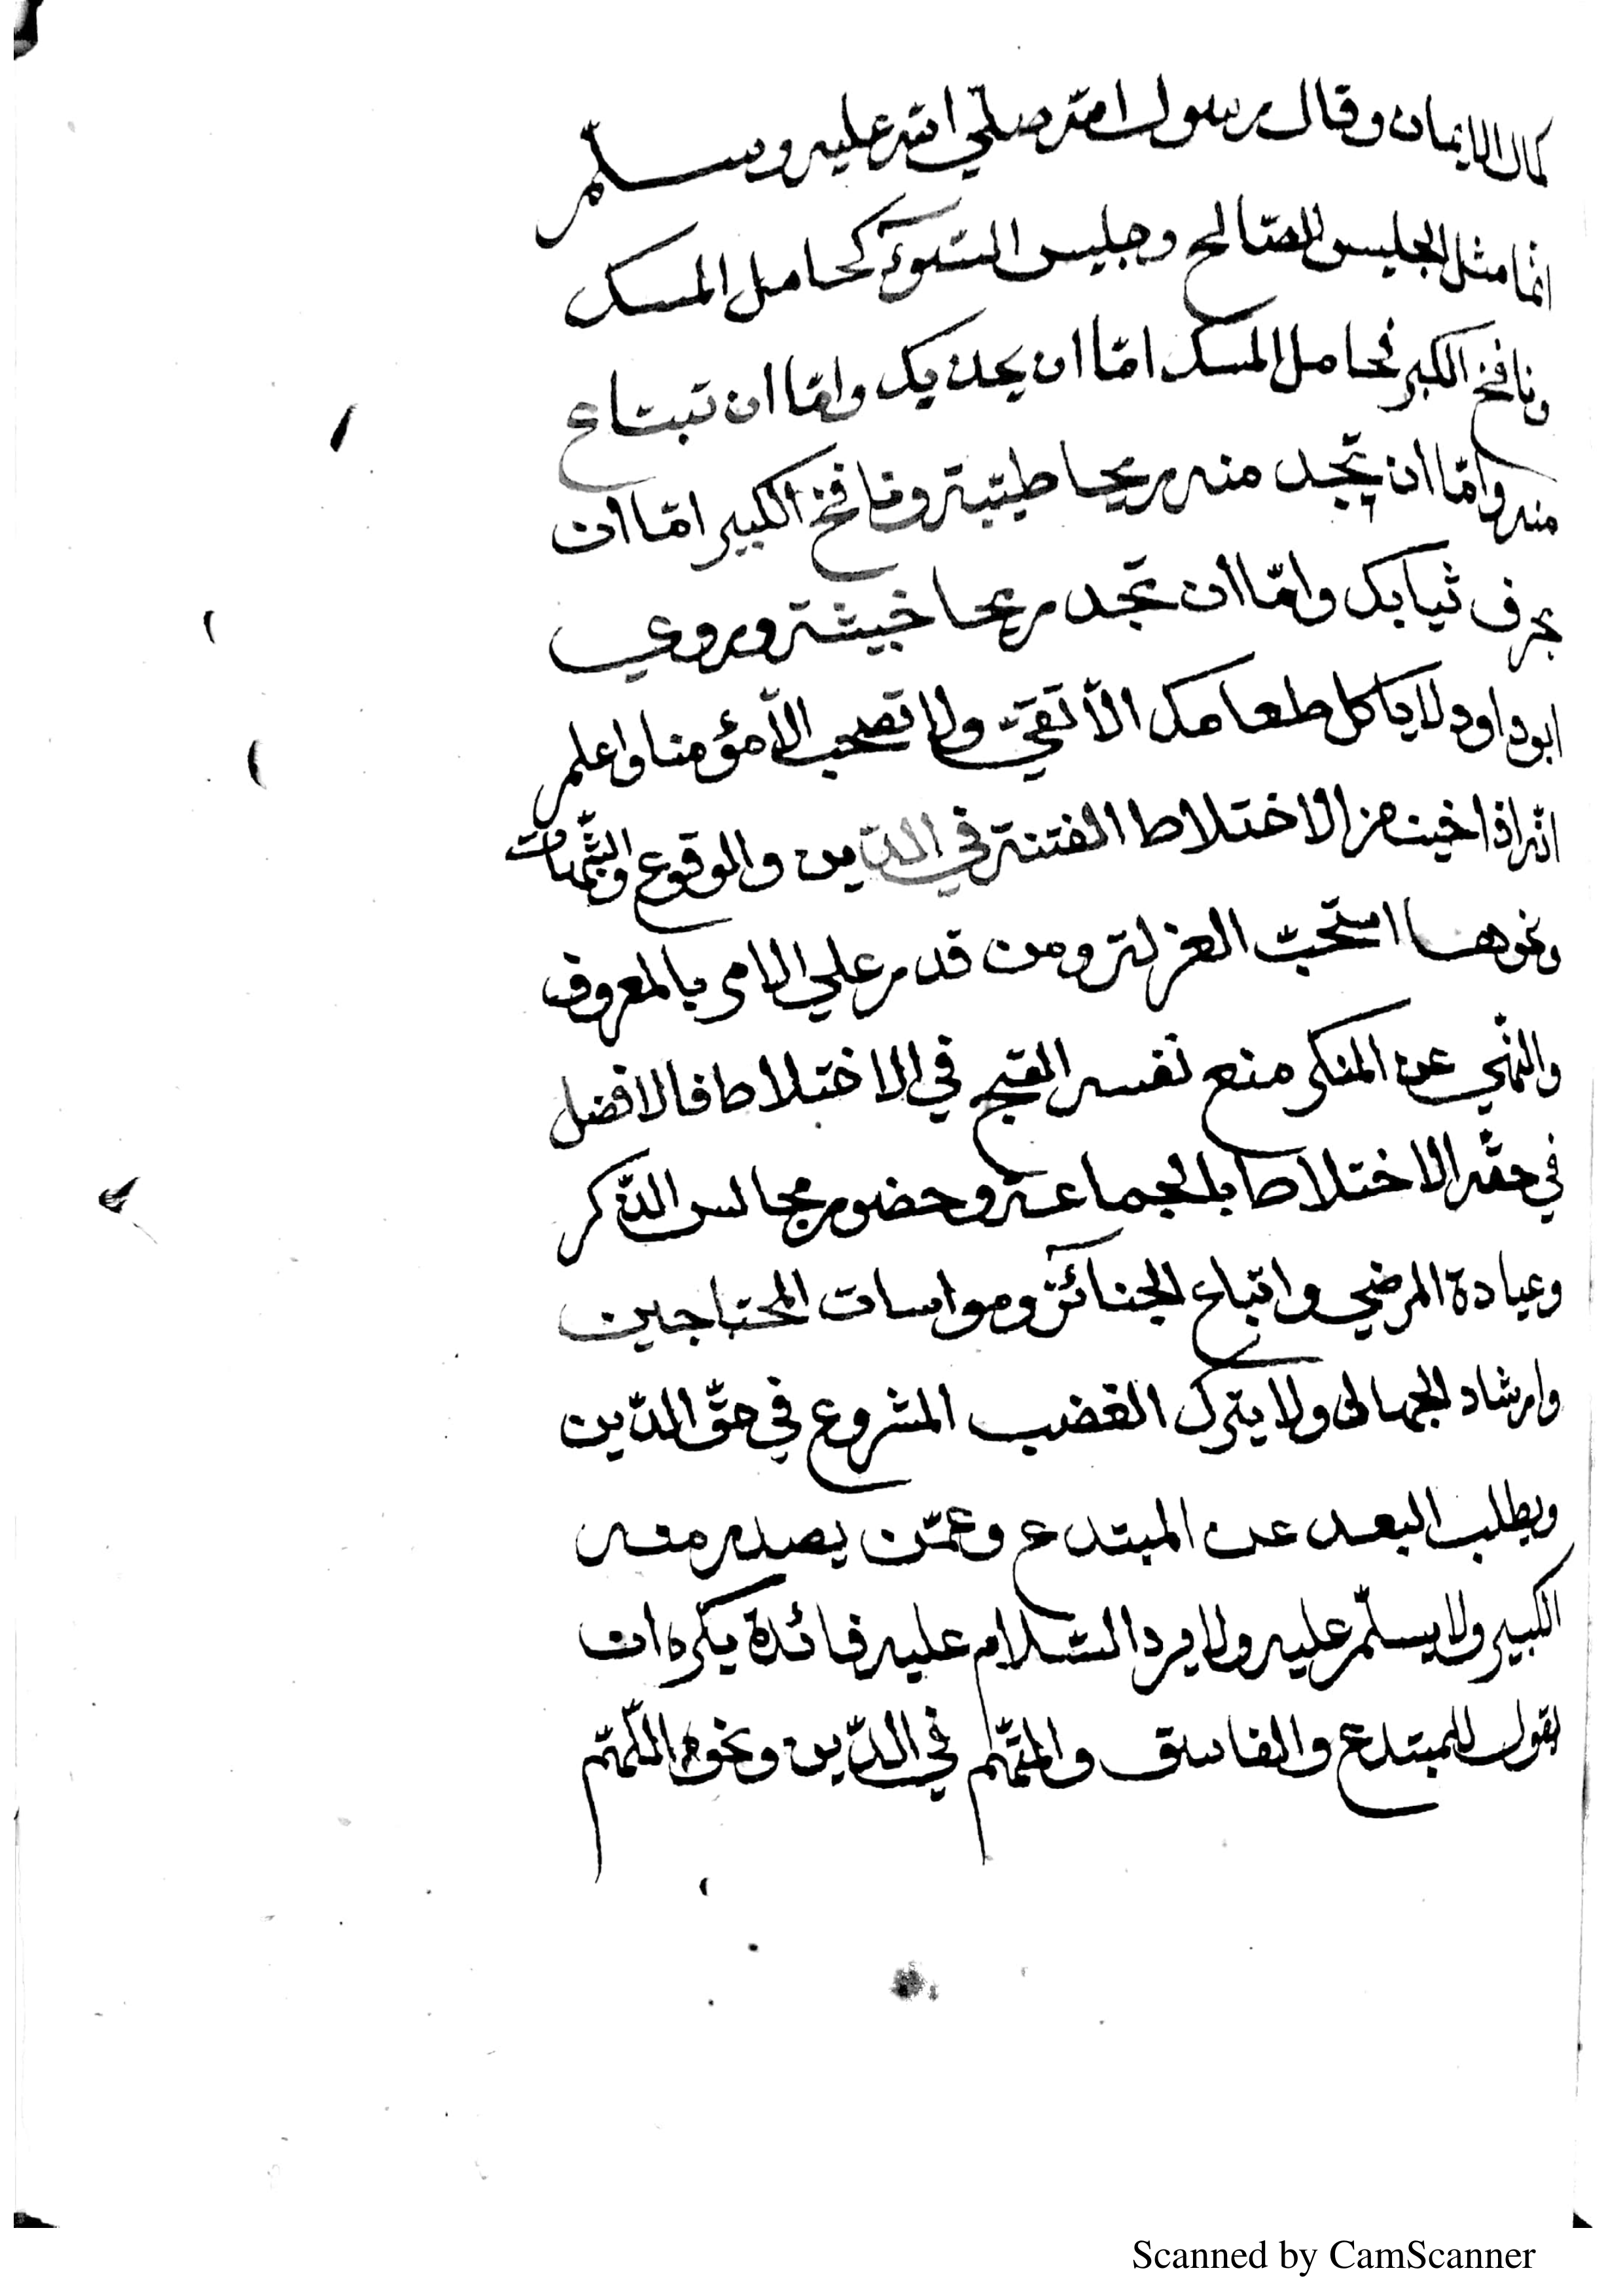 كمال الايمان وقال رسول الله صلّي الله عليه وسلّم
انّما مثل الجليس الصّالح وجليس السّوء كحامل المسك
ونافخ الكير فحامل المسك امّا ان يحذيك وامّا ان تبتاع
منه وامّا ان تجد منه ريحا طيّبة ونافخ الكير امّا ان
يحرف ثيابك وامّا ان تجد ريحا خبيثة وروي
ابو داود لا ياكل طعامك الّا تقيّ ولا تصحب الّا مؤمنا واعلم
انّه اذا خيف من الاختلاط الفتنة في الدّين والوقوع والشّبهات
ونحوها استحبّ العزلة ومن قدر علي الامر بالمعروف
والنّهي عن المنكر منع نفسه القبح في الاختلاط فالافضل
في حقّه الاختلاط بالجماعة وحضور مجالس الذّكر
وعيادة المرضي واتباع الجنائز ومواسات المحتاجين
وارشاد الجهال ولا يترك الغضب المشروع في حقّ الدّين
ويطلب البعد عن المبتدع وعمّن يصدر منه
الكبير ولا يسلّم عليه ولا يرد السّلام عليه فائدة يكره ان
يقول للمبتدع والفاسق والمتّهم في الدّين ونحوه اللّهمّ
Scanned by CamScanner